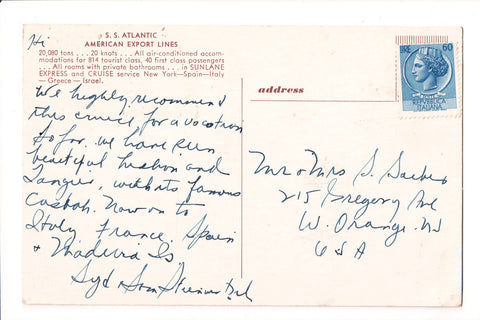 S. S. ATLANTIC
AMERICAN EXPORT LINES
20,080 tons . . . 20 knots . . . All air-conditioned accom-
modations for 814 tourist class, 40 first class passengers
. . . All rooms with private bathrooms . . . in SUNLANE
EXPRESS and CRUISE service New York—Spain—Italy
— Greece — Israel.
Hi
We highly recommend
this cruise for a vacation
So far we have seen
beautiful Lisbon and
Tangier, with its famous
Casbah. Now on to
Italy France, Spain
+ Madeira Is
Syd
address
60
REPUBBLICA
ITALIANA
Mr & Mrs S.
215 Gregory Ave
W. Orange. NJ
USA